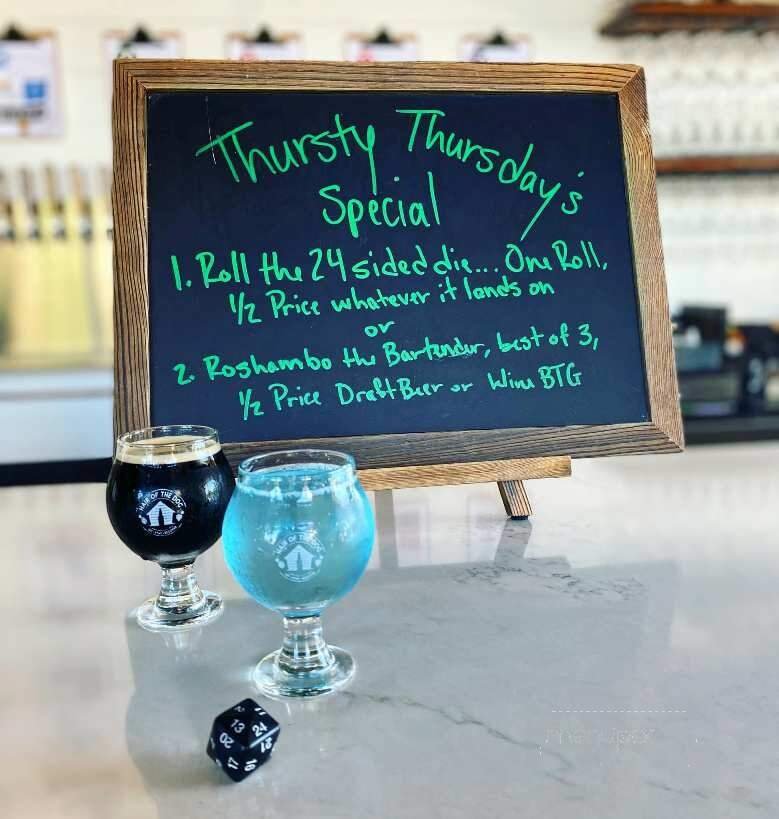 Thursty Thursday's
Special
1. Roll the 24 sided die... One Roll,
1/2 Price whatever it lands on
or
2. Roshambo the Bartender, best of 3,
1/2 Price Draft Beer or Wine BTG
HAIR OF THE DOG
HAIR OF THE DOG
13
24
20
17